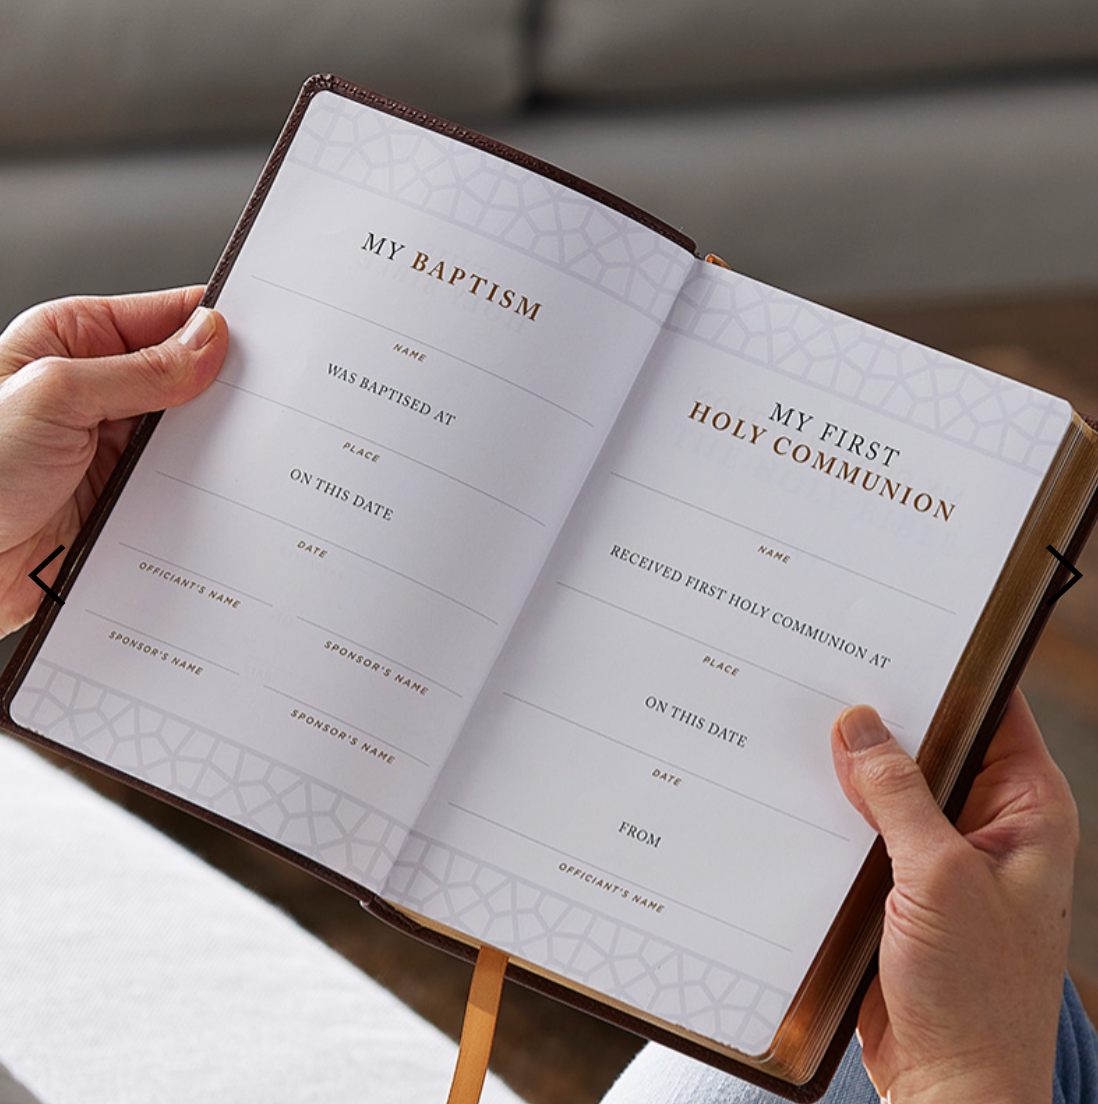 MY BAPTISM
NAME
WAS BAPTISED AT
PLACE
ON THIS DATE
DATE
OFFICIANT'S NAME
SPONSOR'S NAME
SPONSOR'S NAME
SPONSOR'S NAME
MY FIRST
HOLY COMMUNION
NAME
RECEIVED FIRST HOLY COMMUNION AT
PLACE
ON THIS DATE
DATE
FROM
OFFICIANT'S NAME